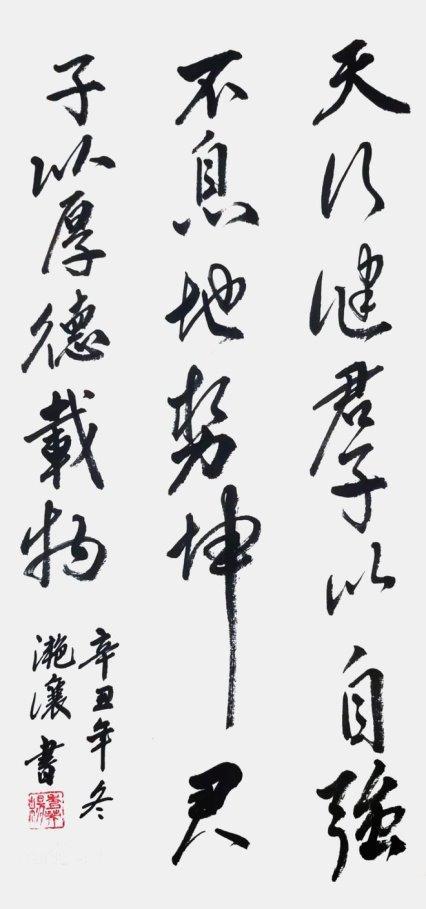 天行健羣子以自強
不息地勢坤君
子以厚德載物
辛丑年冬
灔瀼書